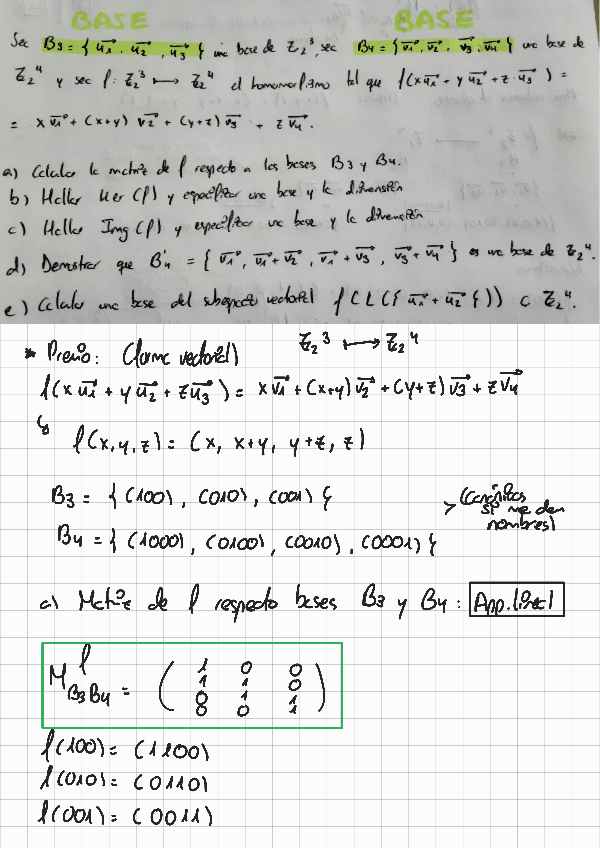 BASE BASE
Sea B3 = { u1, u2, u3 } una base de Z2^3, sea B4 = { v1, v2, v3, v4 } una base de
Z2^4 y sea f: Z2^3 ⟼ Z2^4 el homomorfismo tal que f(x u1 + y u2 + z · u3) =
= x v1 + (x+y) v2 + (y+z) v3 + z v4.
a) Calcular la matriz de f respecto a las bases B3 y B4.
b) Hallar Ker (f) y especificar una base y la dimensión
c) Hallar Img (f) y especificar una base y la dimensión
d) Demostrar que B'4 = { v1, v1 + v2, v1 + v3, v3 + v4 } es una base de Z2^4.
e) Calcular una base del subespacio vectorial f ( L ( { u1 + u2 } ) ) ⊂ Z2^4.
* Previo: (forma vectorial) Z2^3 ⟼ Z2^4
f(x u1 + y u2 + z u3) = x v1 + (x+y) v2 + (y+z) v3 + z v4
↳ f(x,y,z) = (x, x+y, y+z, z)
B3 = { (100), (010), (001) }
B4 = { (1000), (0100), (0010), (0001) }
> (Canónicas
si me dan
nombres)
a) Matriz de f respecto bases B3 y B4: App. lineal
M^f B3B4 = ( 1 0 0
1 1 0
0 1 1
0 0 1 )
f(100) = (1100)
f(010) = (0110)
f(001) = (0011)